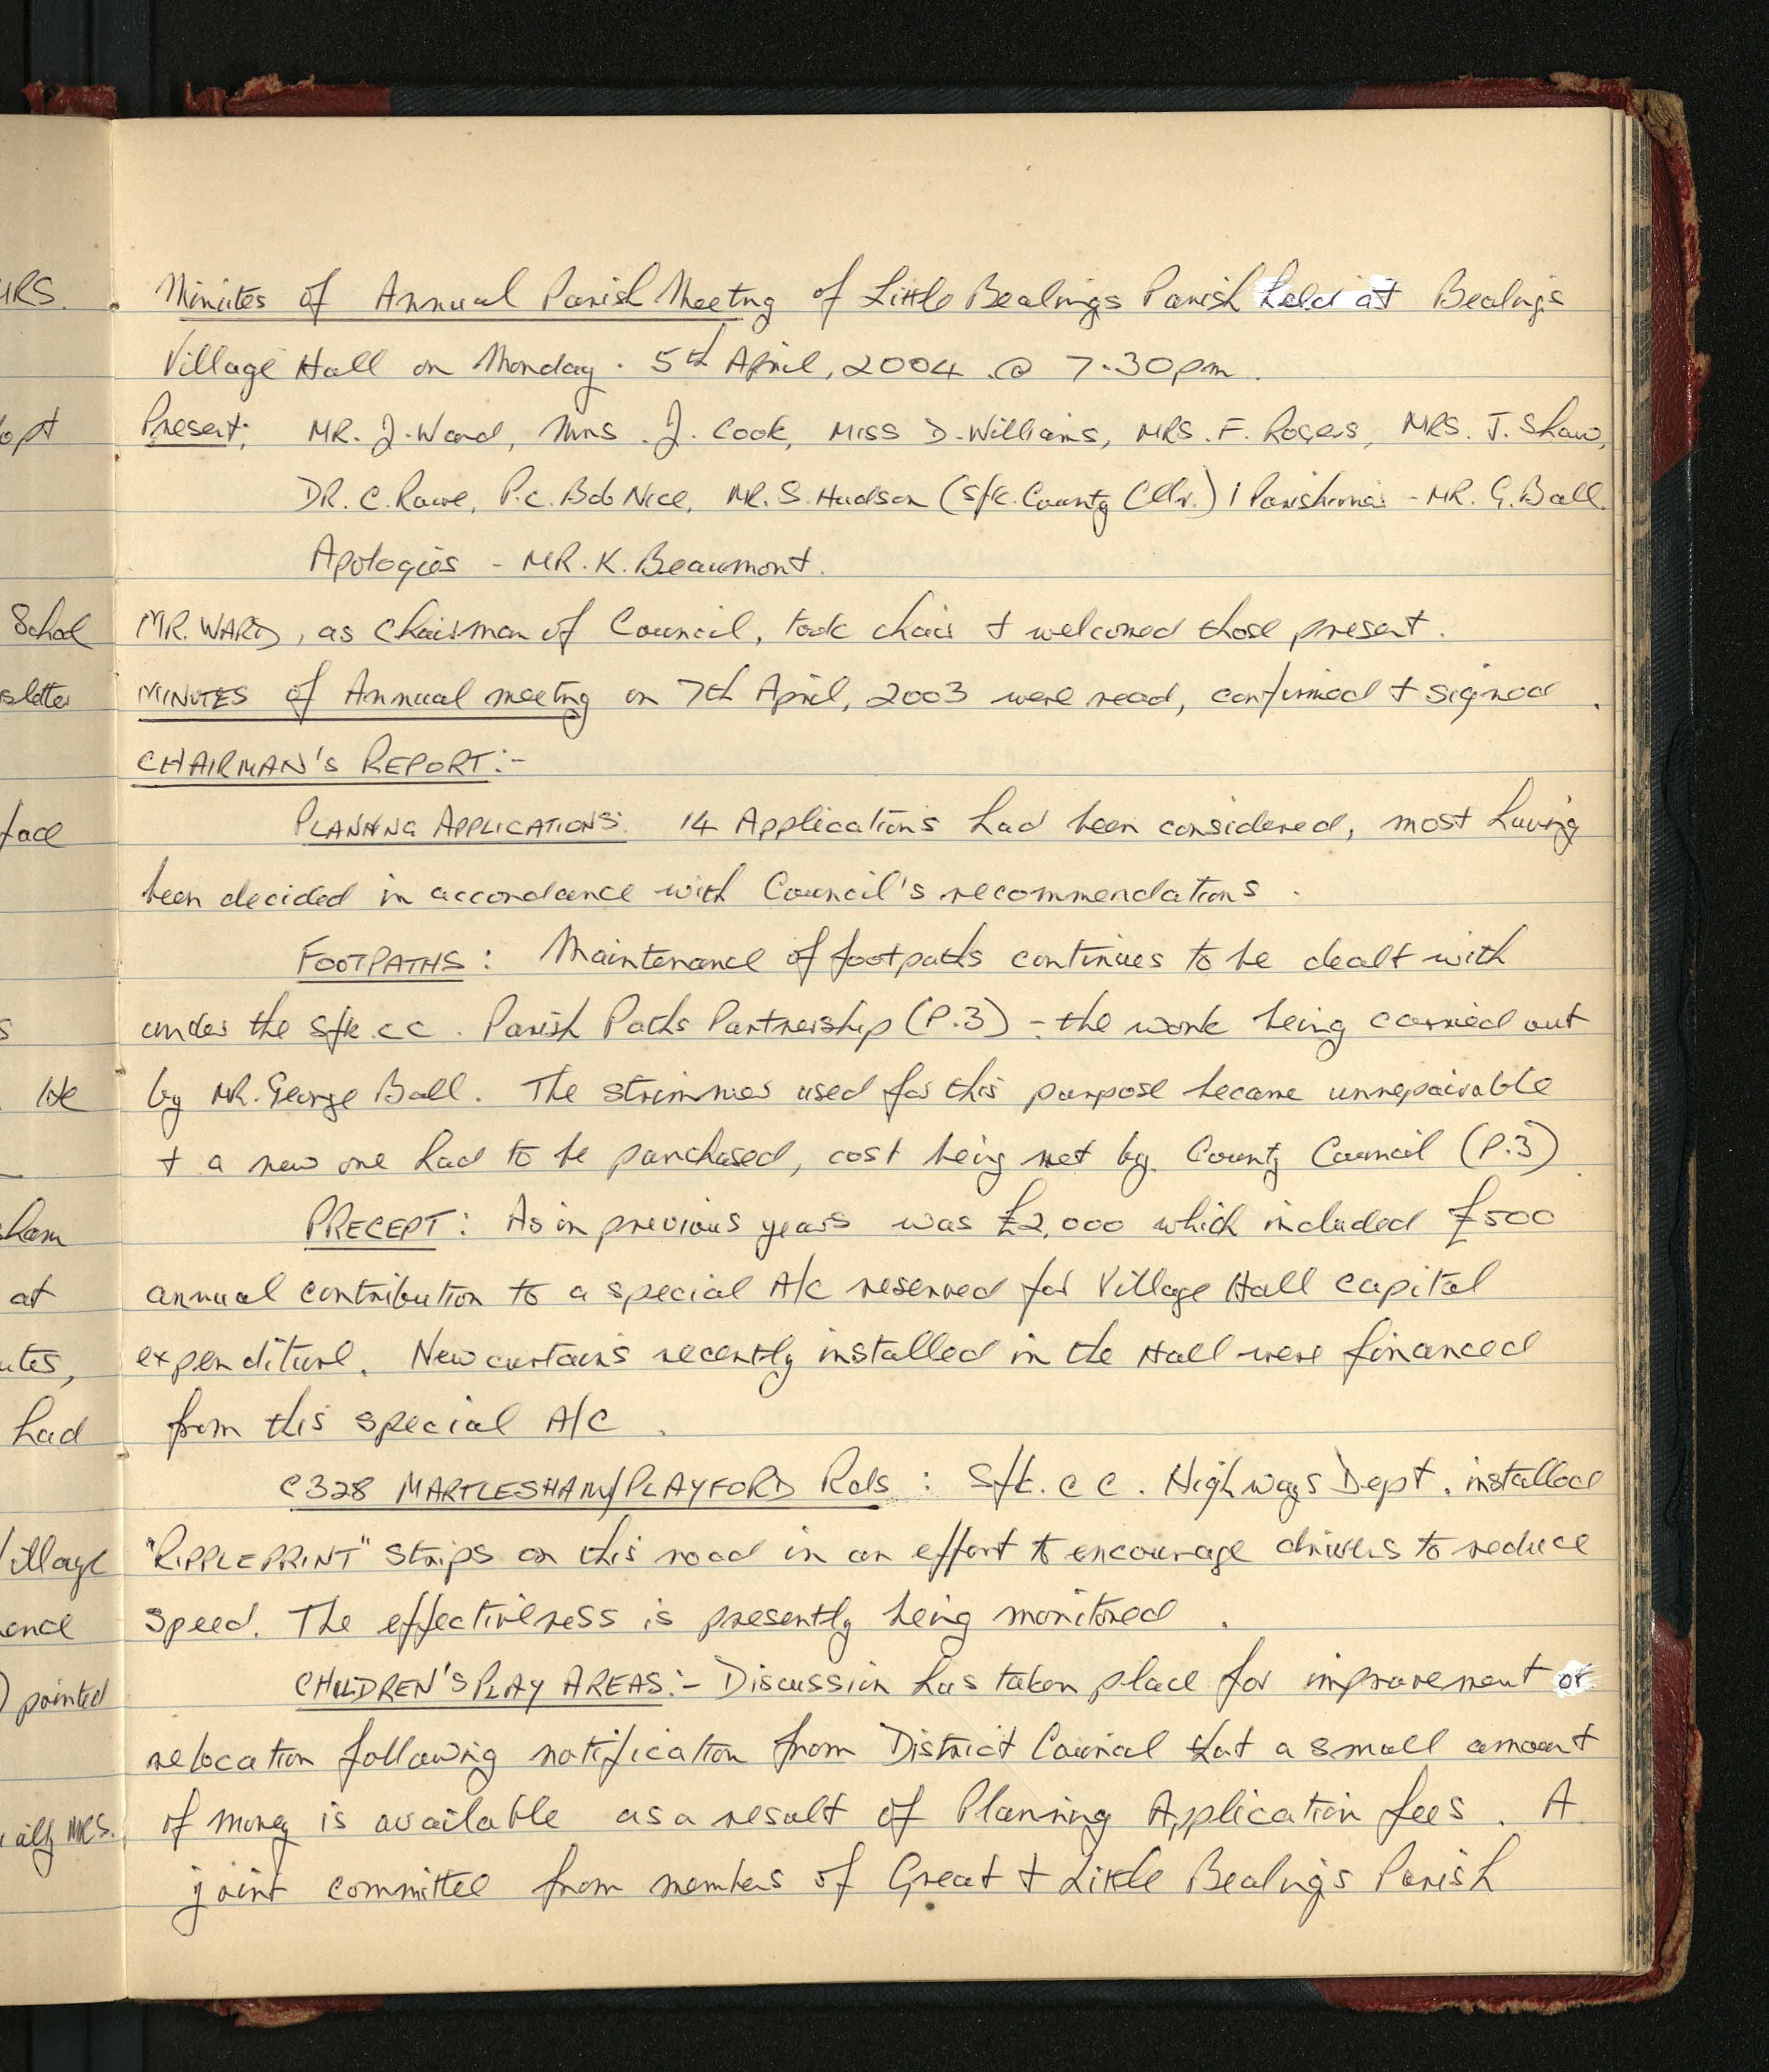 Minutes of Annual Parish Meeting of Little Bealings Parish held at Bealings
Village Hall on Monday. 5th April, 2004 @ 7.30pm.
Present: MR. J. Ward, Mrs. J. Cook, MISS D. Williams, MRS. F. Rogers, MRS. J. Shaw,
DR. C. Rowe, P.C. Bob Nice, MR. S. Hudson (Sfk. County Cllr.) 1 Parishioner - MR. G. Ball.
Apologies - MR. K. Beaumont.
MR. WARD, as Chairman of Council, took chair + welcomed those present.
MINUTES of Annual meeting on 7th April, 2003 were read, confirmed + signed.
CHAIRMAN'S REPORT:-
PLANNING APPLICATIONS: 14 Applications had been considered, most having
been decided in accordance with Council's recommendations.
FOOTPATHS: Maintenance of footpaths continues to be dealt with
under the Sfk. CC. Parish Paths Partnership (P.3) - the work being carried out
by MR. George Ball. The strimmer used for this purpose became unrepairable
+ a new one had to be purchased, cost being met by County Council (P.3).
PRECEPT: As in previous years was £2,000 which included £500
annual contribution to a special A/c reserved for Village Hall capital
expenditure. New curtains recently installed in the Hall were financed
from this special A/C.
C328 MARTLESHAM/PLAYFORD Rds: Sfk. CC. Highways Dept. installed
"RIPPLEPRINT" strips on this road in an effort to encourage drivers to reduce
speed. The effectiveness is presently being monitored.
CHILDREN'S PLAY AREAS:- Discussion has taken place for improvement or
relocation following notification from District Council that a small amount
of money is available as a result of Planning Application fees. A
joint committee from members of Great + Little Bealings Parish